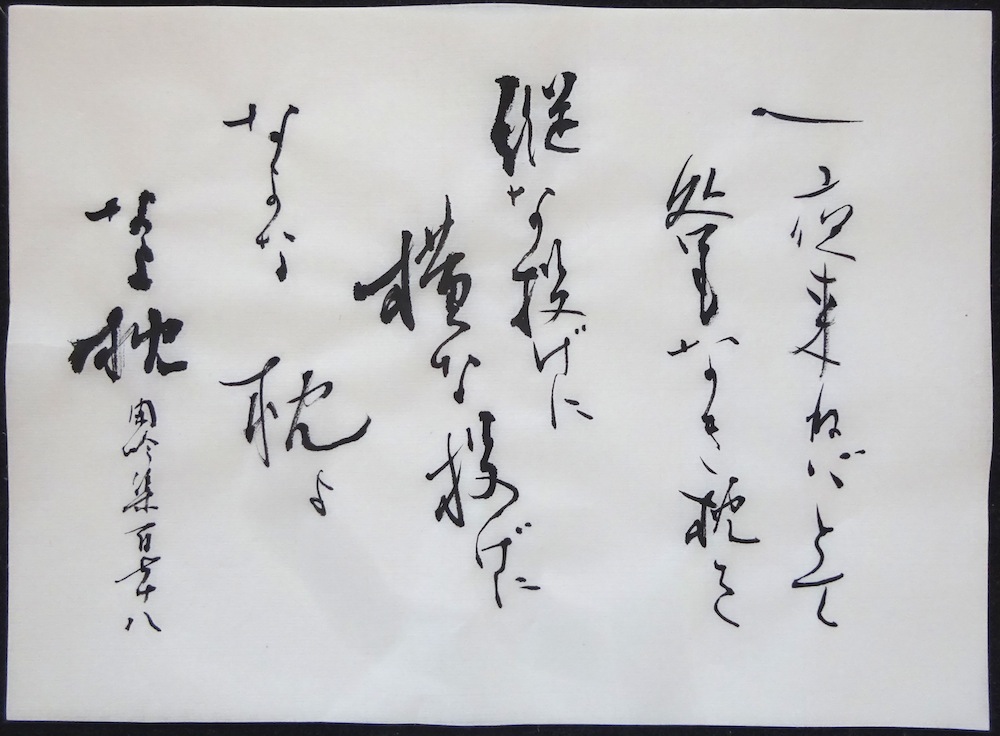 一夜来ねばとて
咎もなき枕を
縦な投げに
横な投げに
なよな 枕よ
なよ枕 閑吟集百七十八